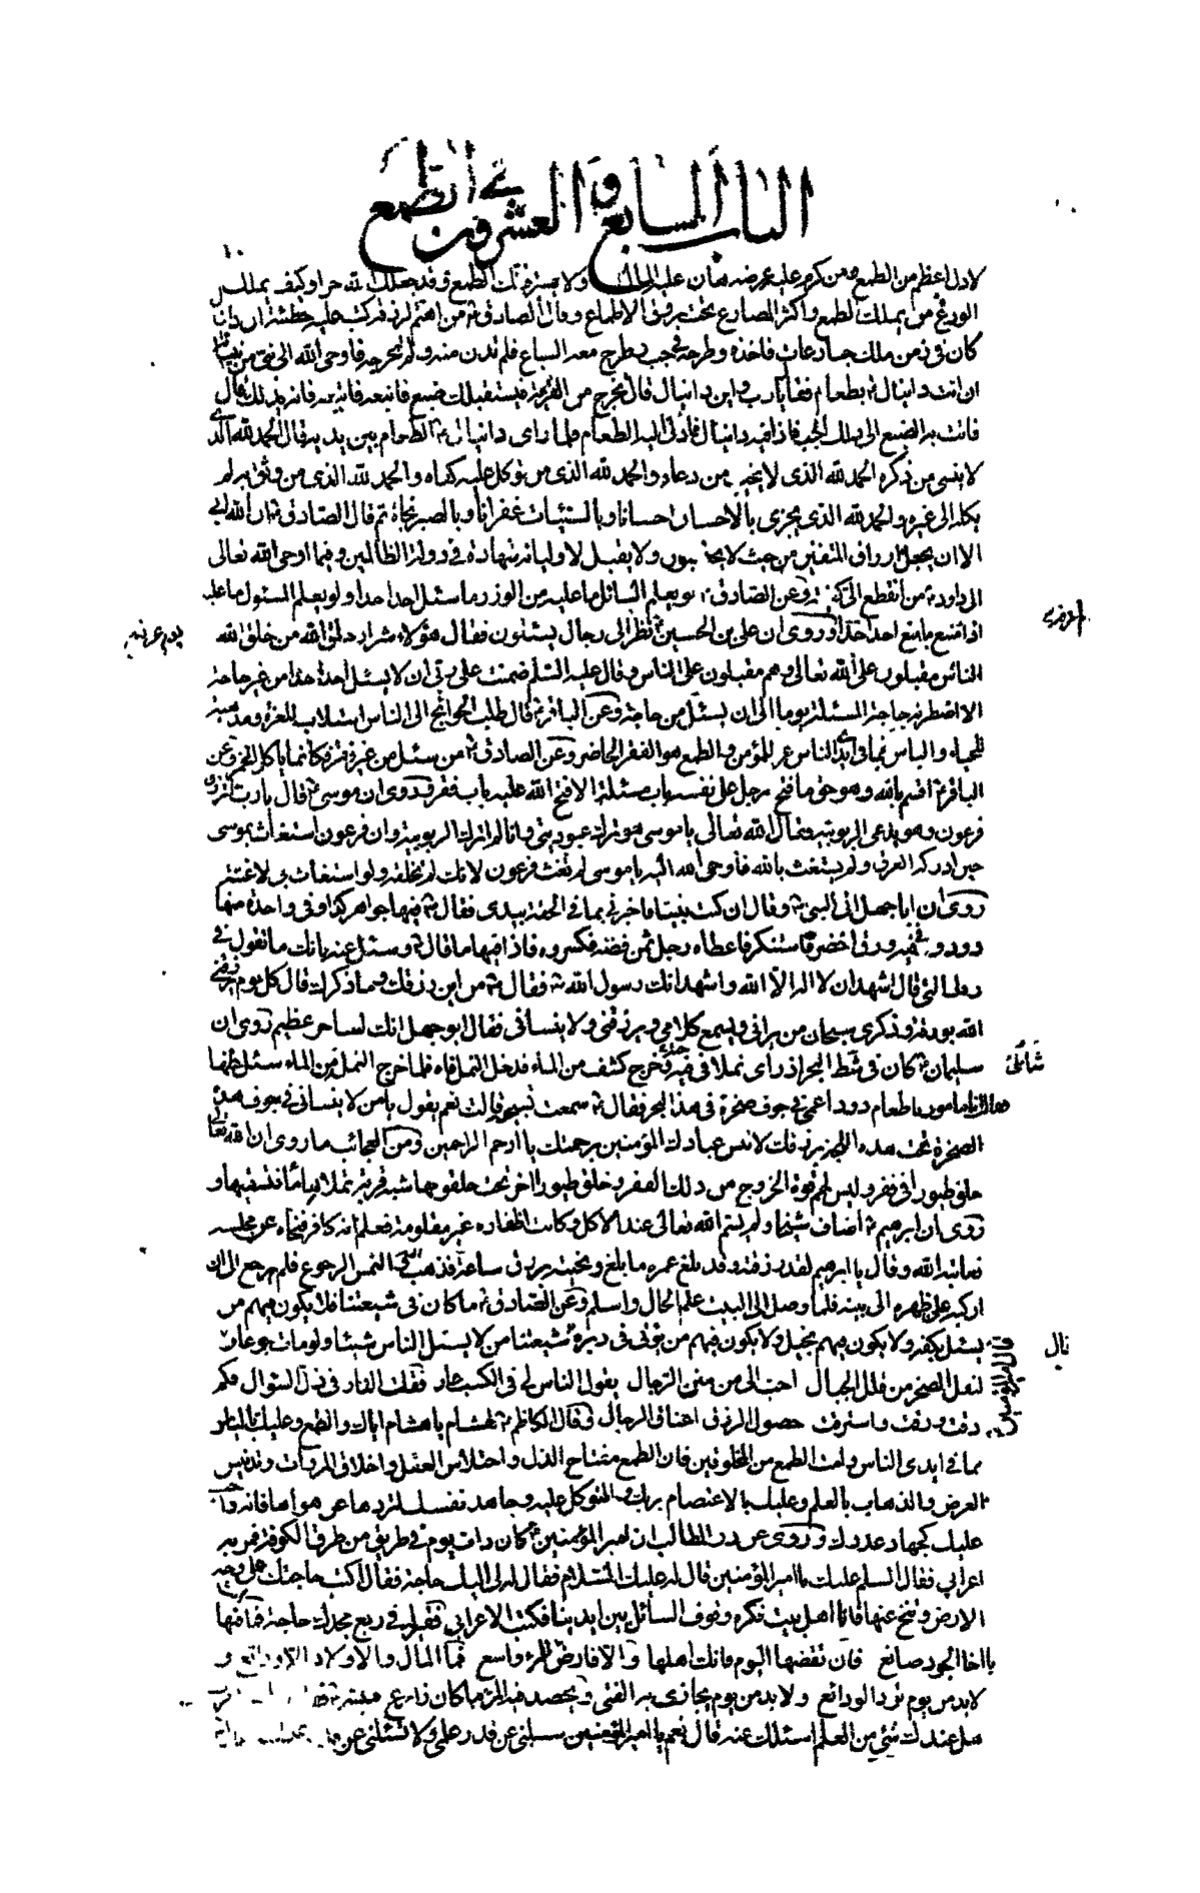 الباب السابع والعشرون في الطمع
لا ذل اعظم من الطمع ومن كرم عليه عرضه هان عليه المال ولا يسترقنك الطمع وقد جعلك الله حرا وكيف يملك
الورع من يملك الطمع واكثر المصارع تحت بروق الاطماع وقال الصادق ع من اهتم لرزقه كتب عليه خطيئة ان دانيال
كان في زمن ملك جبار عات فاخذه وطرحه في جب وطرح معه السباع فلم تدن منه ولم تجرحه فاوحى الله الى نبي من انبيائه
ان ائت دانيال ع بطعام فقال يا رب واين دانيال قال تخرج من القرية فيستقبلك ضبع فاتبعه فانه يدلك قال
فاتت به الضبع الى ذلك الجب فاذا فيه دانيال فادلى اليه الطعام فلما راى دانيال ع الطعام بين يديه قال الحمد لله الذي
لا ينسى من ذكره الحمد لله الذي لا يخيب من دعاه والحمد لله الذي من توكل عليه كفاه والحمد لله الذي من وثق به لم
يكله الى غيره والحمد لله الذي يجزي بالاحسان احسانا وبالسيئات غفرانا وبالصبر نجاة ثم قال الصادق ع ان الله ابى
الا ان يجعل ارزاق المتقين من حيث لا يحتسبون ولا يقبل لاوليائه شهادة في دولة الظالمين وفيما اوحى الله تعالى
الى داود ع من انقطع الي كفيته وعن الصادق ع لو يعلم السائل ما عليه من الوزر ما سئل احد احدا ولو يعلم المسئول ما عليه
اذا منع ما منع احد احدا وروى ان علي بن الحسين ع نظر الى رجال يسئلون فقال هؤلاء شرار خلق الله من خلق الله
يوم عرفة
الناس مقبلون على الله تعالى وهم مقبلون على الناس وقال عليه السلم ضمنت على ربي ان لا يسئل احد احدا من غير حاجة
الا اضطرته حاجة المسئلة يوما الى ان يسئل من حاجة وعن الباقر ع قال طلب الحوائج الى الناس استلاب للعزة ومذهبة
للحياء والياس مما في ايدي الناس عز للمؤمن والطمع هو الفقر الحاضر وعن الصادق ع من سئل من غير فقر فكانما ياكل الخمر وعن
الباقر ع اقسم بالله وهو حق ما فتح رجل على نفسه باب مسئلة الا فتح الله عليه باب فقر وروى ان موسى ع قال يا رب لم ترزق
فرعون وهو يدعى الربوبية فقال الله تعالى يا موسى هو ترك عبوديتي وانا لم اترك الربوبية وان فرعون استغاث بموسى
حين ادركه الغرق ولم يستغث بالله فاوحى الله اليه يا موسى لم تغث فرعون لانك لم تخلقه ولو استغاث بي لاغثته
روى ان ابا جهل اتى النبي ص وقال ان كنت نبيا فاخبرني بما في الحقة بيدي فقال ص فيها جواهر كذا وفي واحدة منها
دودة في فيه ورق اخضر فاستنكر فاعطاه رجل ثمن فضه فكسروه فاذا فيها ما قال ص وسئل عنه بانك ما تقول في
قال اشهد ان لا اله الا الله واشهد انك رسول الله ص فقال ص من اين رزقك وما ذكرك قال كل يوم يرزقني
الله بورقة وذكري سبحان من يراني ويسمع كلامي ويرزقني ولا ينساني فقال ابو جهل انك لساحر عظيم روى ان
سليمان ع كان في شط البحر اذ راى نملا في فيه حبة فخرج كشف من الماء فدخل النمل فاه فلما خرج النمل من الماء سئل عنها
شاطئ
فقال انا مامور باطعام دود اعمى في جوف صخرة في هذا البحر فقال ع سمعت تسبيحه قالت نعم يقول يا من لا ينساني في جوف هذه
الصخرة تحت هذه اللجة برزقك لا تنس عبادك المؤمنين برحمتك يا ارحم الراحمين ومن العجائب ما روى ان الله تعالى
خلق طيورا في قفر وليس لهم قوة الخروج من ذلك القفر وخلق طيورا اخر تحت حلقوها شبه قربة تملا بها ماء فتسقيها و
روى ان ابراهيم ع اضاف شيخا ولم يسم الله تعالى عند الاكل وكانت اظفاره غير مقلومة فعلم انه كافر فنحاه عن مجلسه
فعاتبه الله وقال يا ابراهيم لقد رزقته وقد بلغ عمره ما بلغ ونحيته من رزق ساعة فذهب في التمس الرجوع فلم يرجع الى ان
اركبه على ظهره الى بيته فلما وصل الى البيت علم الحال واسلم وعن الصادق ع ما كان في شيعتنا فلا يكون فيهم من
يسئل بكفه ولا يكون فيهم بخيل ولا يكون فيهم من يؤتى في دبره شيعتنا من لا يسئل الناس شيئا ولو مات جوعا
قال امير المؤمنين ع
لنقل الصخر من قلل الجبال احب الي من منن الرجال يقول الناس لي في الكسب عار فقلت العار في ذل السؤال وكم
حصول الرزق اعناق الرجال وقال الكاظم ع لهشام يا هشام اياك والطمع وعليك بالياس
مما في ايدي الناس وامت الطمع من المخلوقين فان الطمع مفتاح الذل واختلاس العقل واخلاق المروات وتدنيس
العرض والذهاب بالعلم وعليك بالاعتصام بربك والتوكل عليه وجاهد نفسك لتردها عن هواها فانه واجب
عليك كجهاد عدوك وروى ان امير المؤمنين ع كان ذات يوم في طريق من طرق الكوفة فمر به
اعرابي فقال السلم عليك يا امير المؤمنين قال له عليك السلام فقال له لي اليك حاجة فقال اكتب حاجتك على وجه
الارض وتنح عنها فانا اهل بيت نكره وقوف السائل بين ايدينا فكتب الاعرابي فقير في ربع مجدك حاجة
يا اخا الجود صانع فان تقضها اليوم فانت اهلها والا فارض الله واسع فما المال والاولاد الا ودائع و
لا بد من يوم ترد الودائع ولا بد من يوم يجازى به الفتى ويحصد فيه المرء ما كان زارع
هل عندك شيء من العلم اسئلك عنه قال نعم يا امير المؤمنين سلني عن قدر علمي ولا تسئلني عن